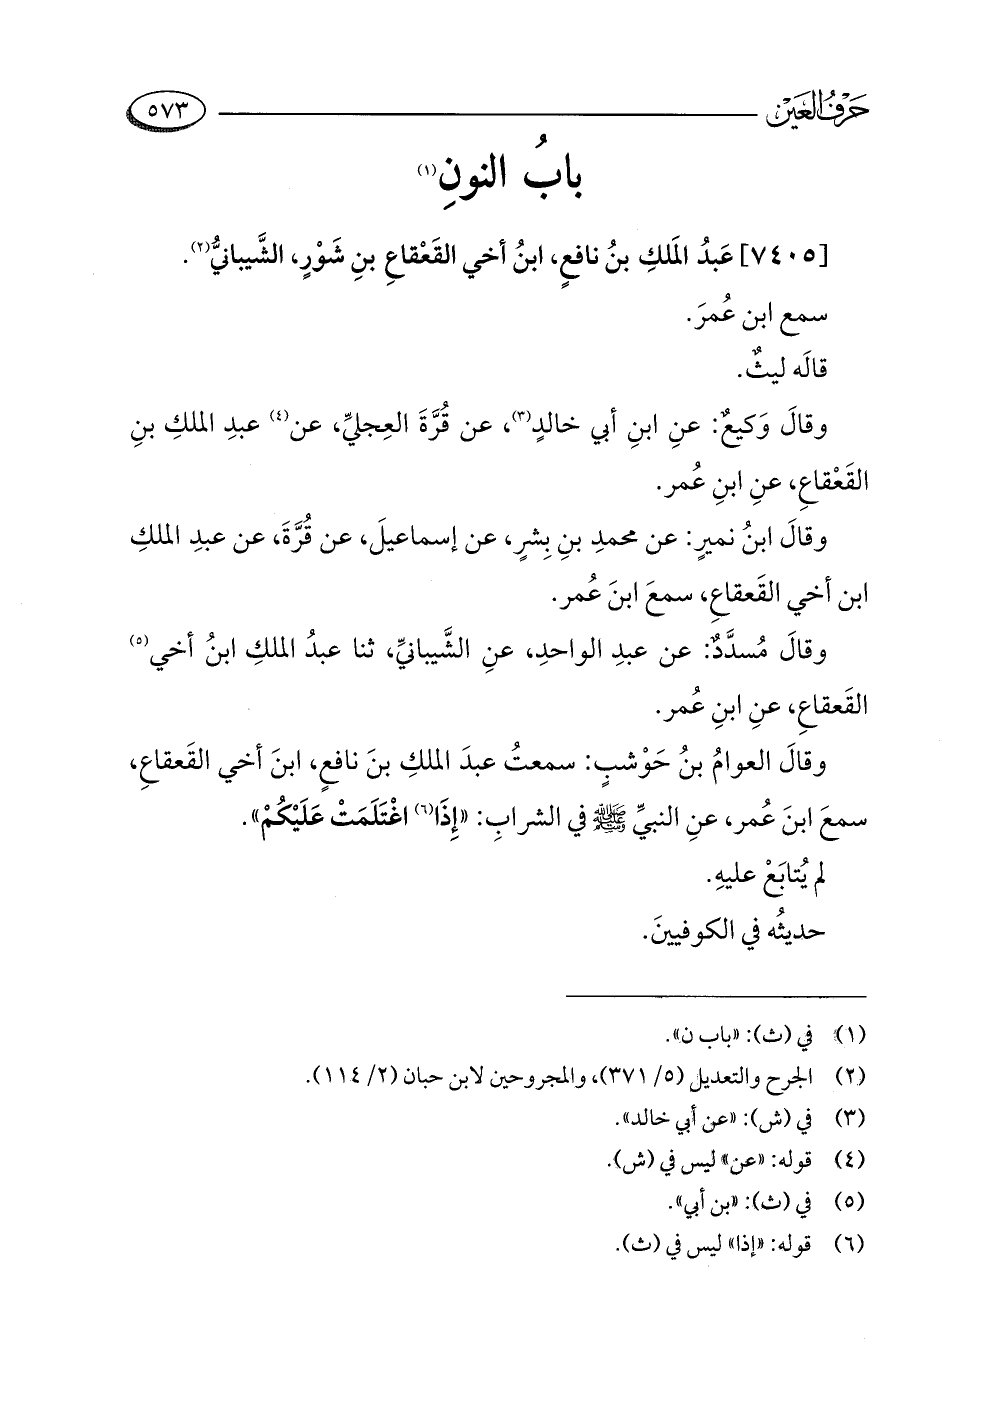 حَرْفُ العَين
٥٧٣
بابُ النونِ(١)
[٧٤٠٥] عَبدُ المَلكِ بنُ نافعٍ، ابنُ أخي القَعْقاعِ بنِ شَوْرٍ، الشَّيبانيُّ(٢).
سمع ابن عُمرَ.
قالَه ليثٌ.
وقالَ وَكيعٌ: عنِ ابنِ أبي خالدٍ(٣)، عن قُرَّةَ العِجليِّ، عن(٤) عبدِ الملكِ بنِ
القَعْقاعِ، عنِ ابنِ عُمر.
وقالَ ابنُ نميرٍ: عن محمدِ بنِ بِشرٍ، عن إسماعيلَ، عن قُرَّةَ، عن عبدِ الملكِ
ابن أخي القَعقاعِ، سمعَ ابنَ عُمر.
وقالَ مُسدَّدٌ: عن عبدِ الواحدِ، عنِ الشَّيبانيِّ، ثنا عبدُ الملكِ ابنُ أخي(٥)
القَعقاعِ، عنِ ابنِ عُمر.
وقالَ العوامُ بنُ حَوْشبٍ: سمعتُ عبدَ الملكِ بنَ نافعٍ، ابنَ أخي القَعقاعِ،
سمعَ ابنَ عُمر، عنِ النبيِّ ﷺ في الشرابِ: «إِذَا(٦) اغْتَلَمَتْ عَلَيْكُمْ».
لم يُتابَعْ عليهِ.
حديثُه في الكوفيينَ.
(١) في (ث): «باب ن».
(٢) الجرح والتعديل (٥/ ٣٧١)، والمجروحين لابن حبان (٢/ ١١٤).
(٣) في (ش): «عن أبي خالد».
(٤) قوله: «عن» ليس في (ش).
(٥) في (ث): «بن أبي».
(٦) قوله: «إذا» ليس في (ث).